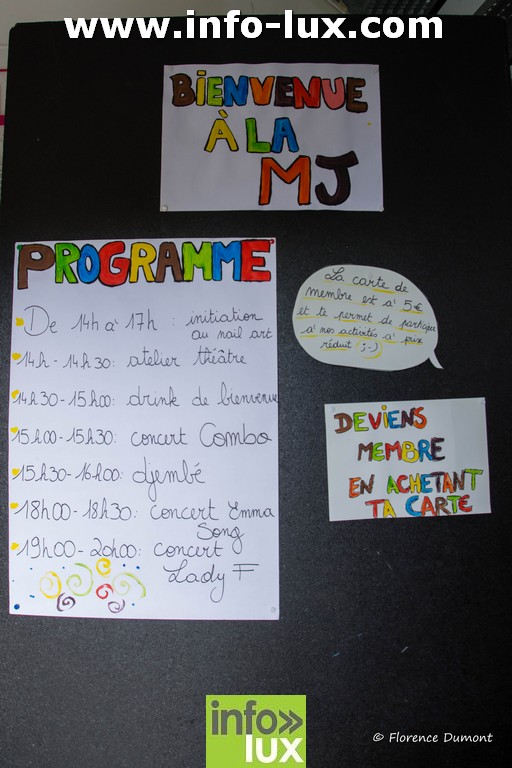 www.info-lux.com
BiENVENUE
À LA
MJ
PROGRAMME
De 14h à 17h : initiation
au nail art
14h - 14h30: atelier théâtre
14h30 - 15h00: drink de bienvenue
15h00 - 15h30: concert Combo
15h30 - 16h00: djembé
18h00 - 18h30: concert Emma
Song
19h00 - 20h00: concert
Lady F
La carte de
membre est à 5€
et te permet de participer
à nos activités à prix
réduit ;-)
DEViENS
MEMBRE
EN ACHETANT
TA CARTE
info»
lux
© Florence Dumont